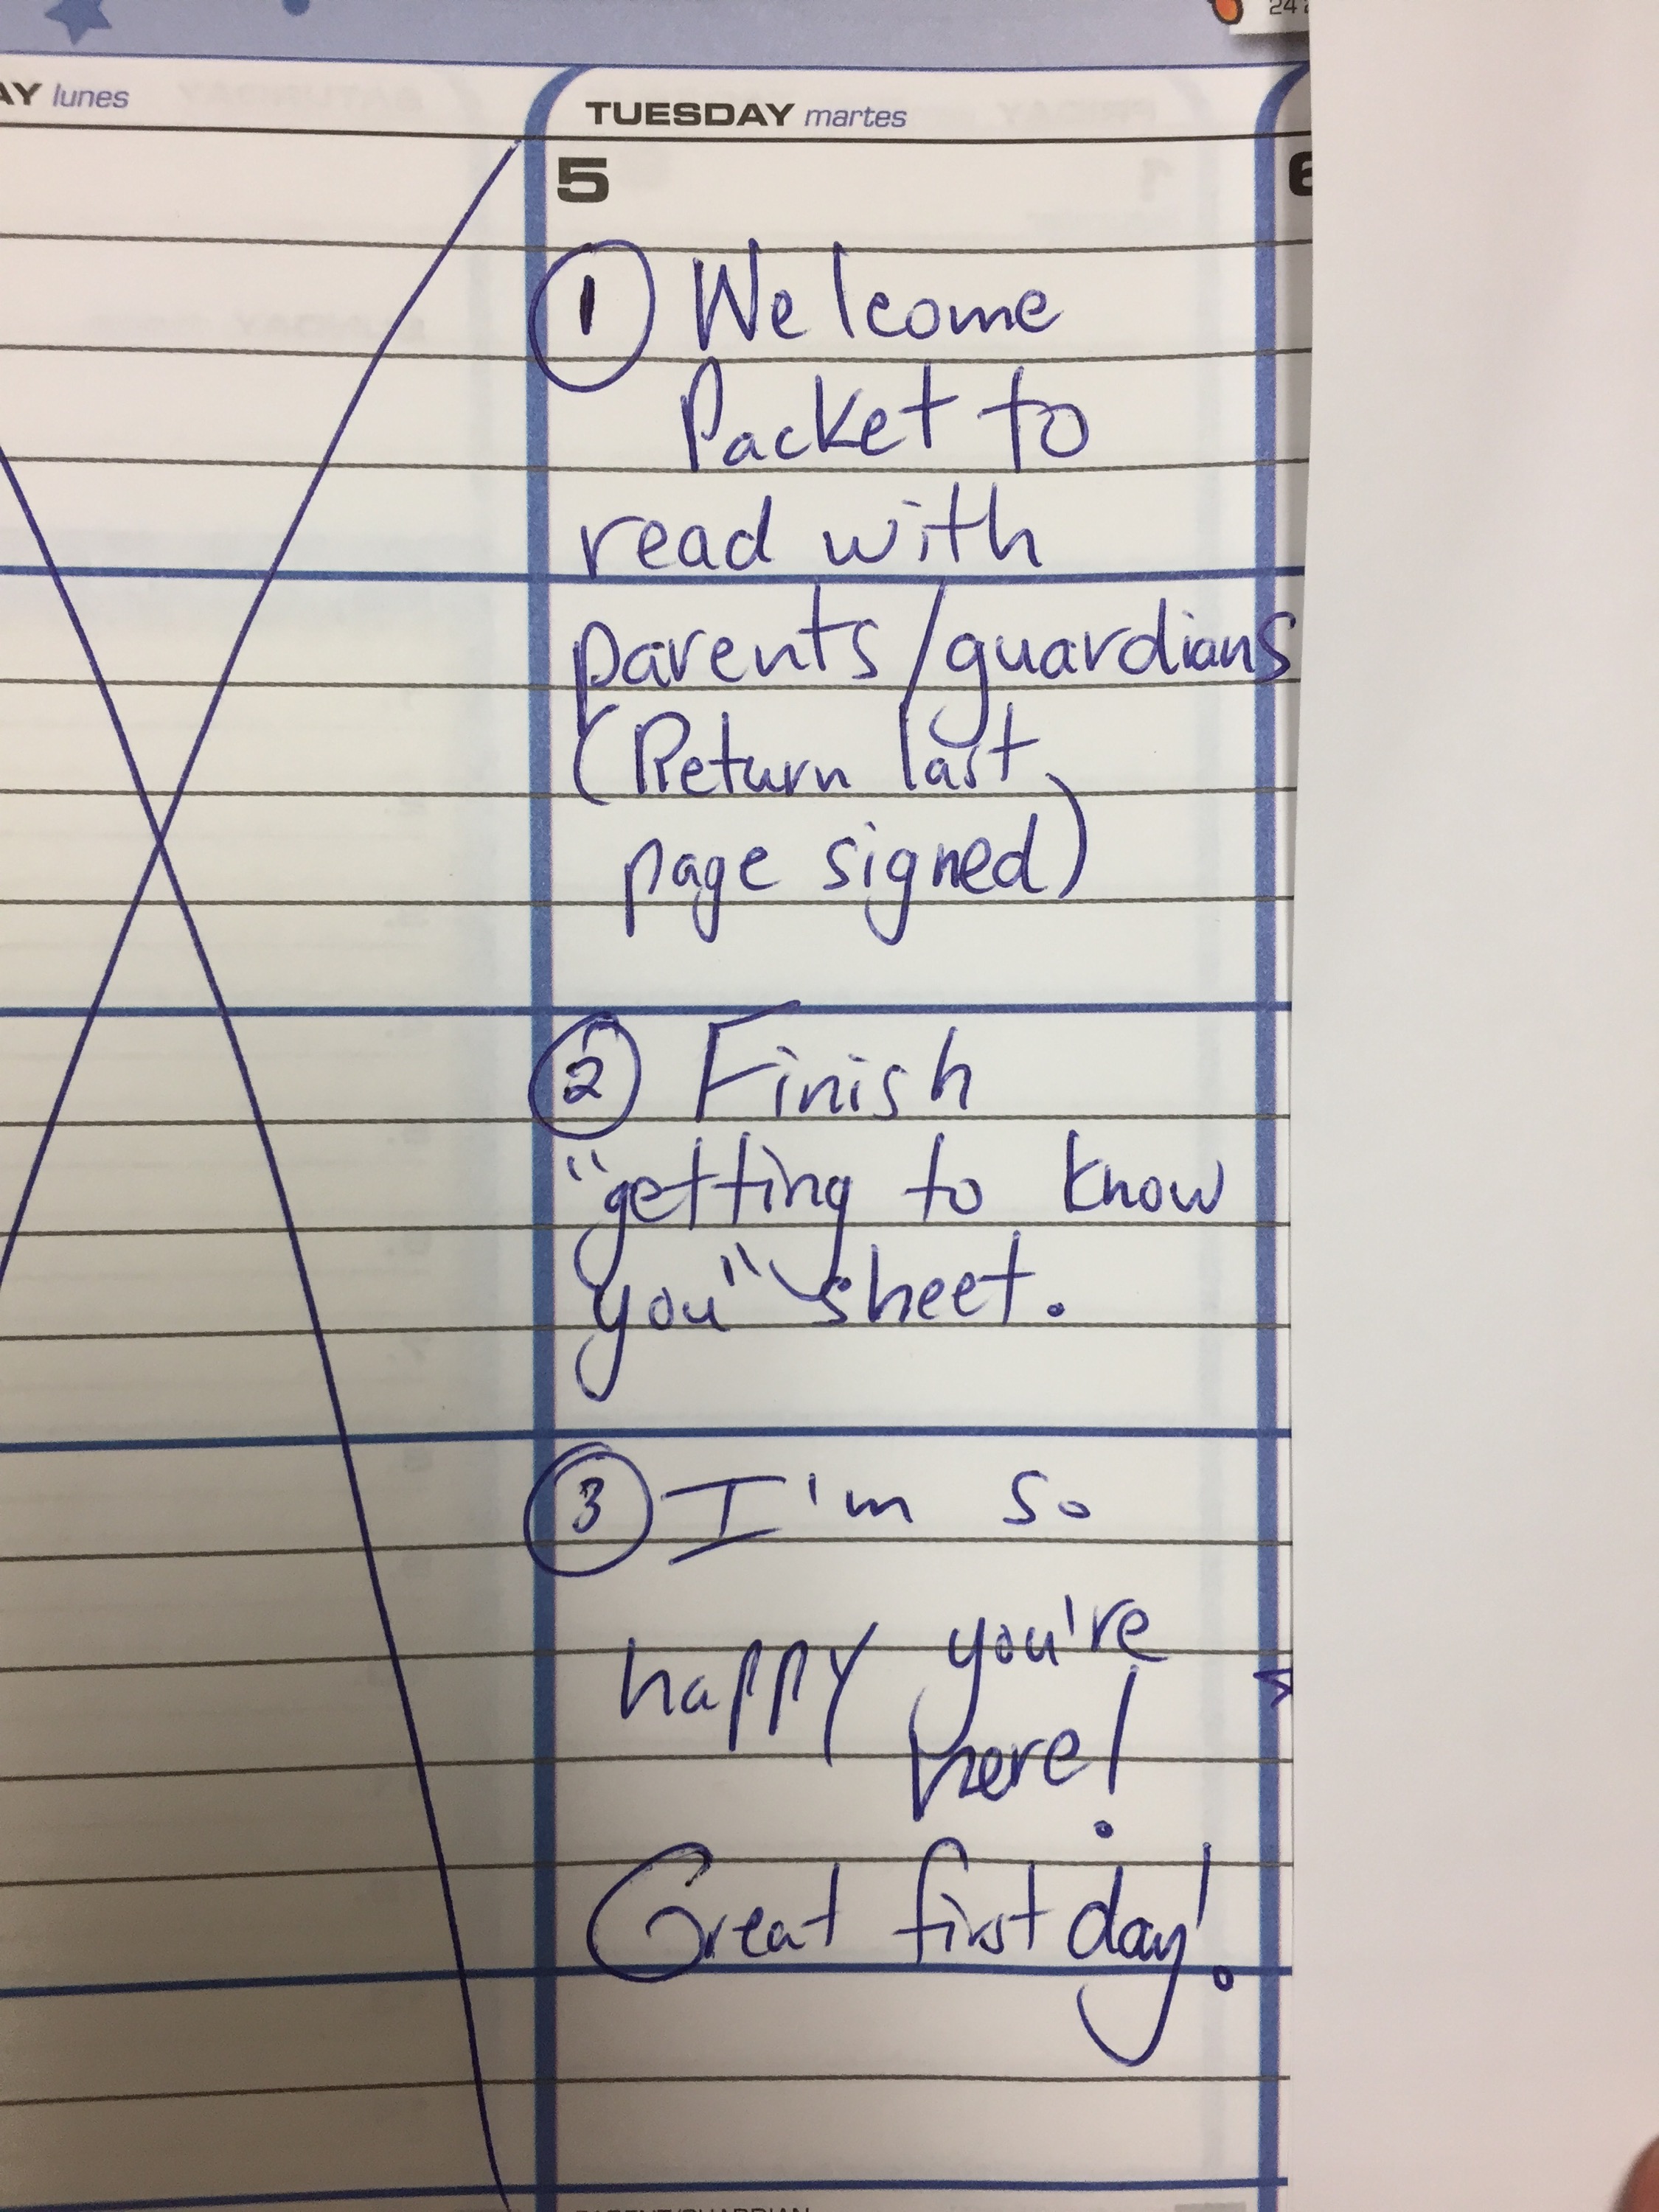 24
AY lunes
TUESDAY martes
5
6
1 Welcome
Packet to
read with
parents/guardians
(Return last
page signed)
2 Finish
"getting to know
you" sheet.
3 I'm so
happy you're
here!
Great first day!
PARENT/GUARDIAN